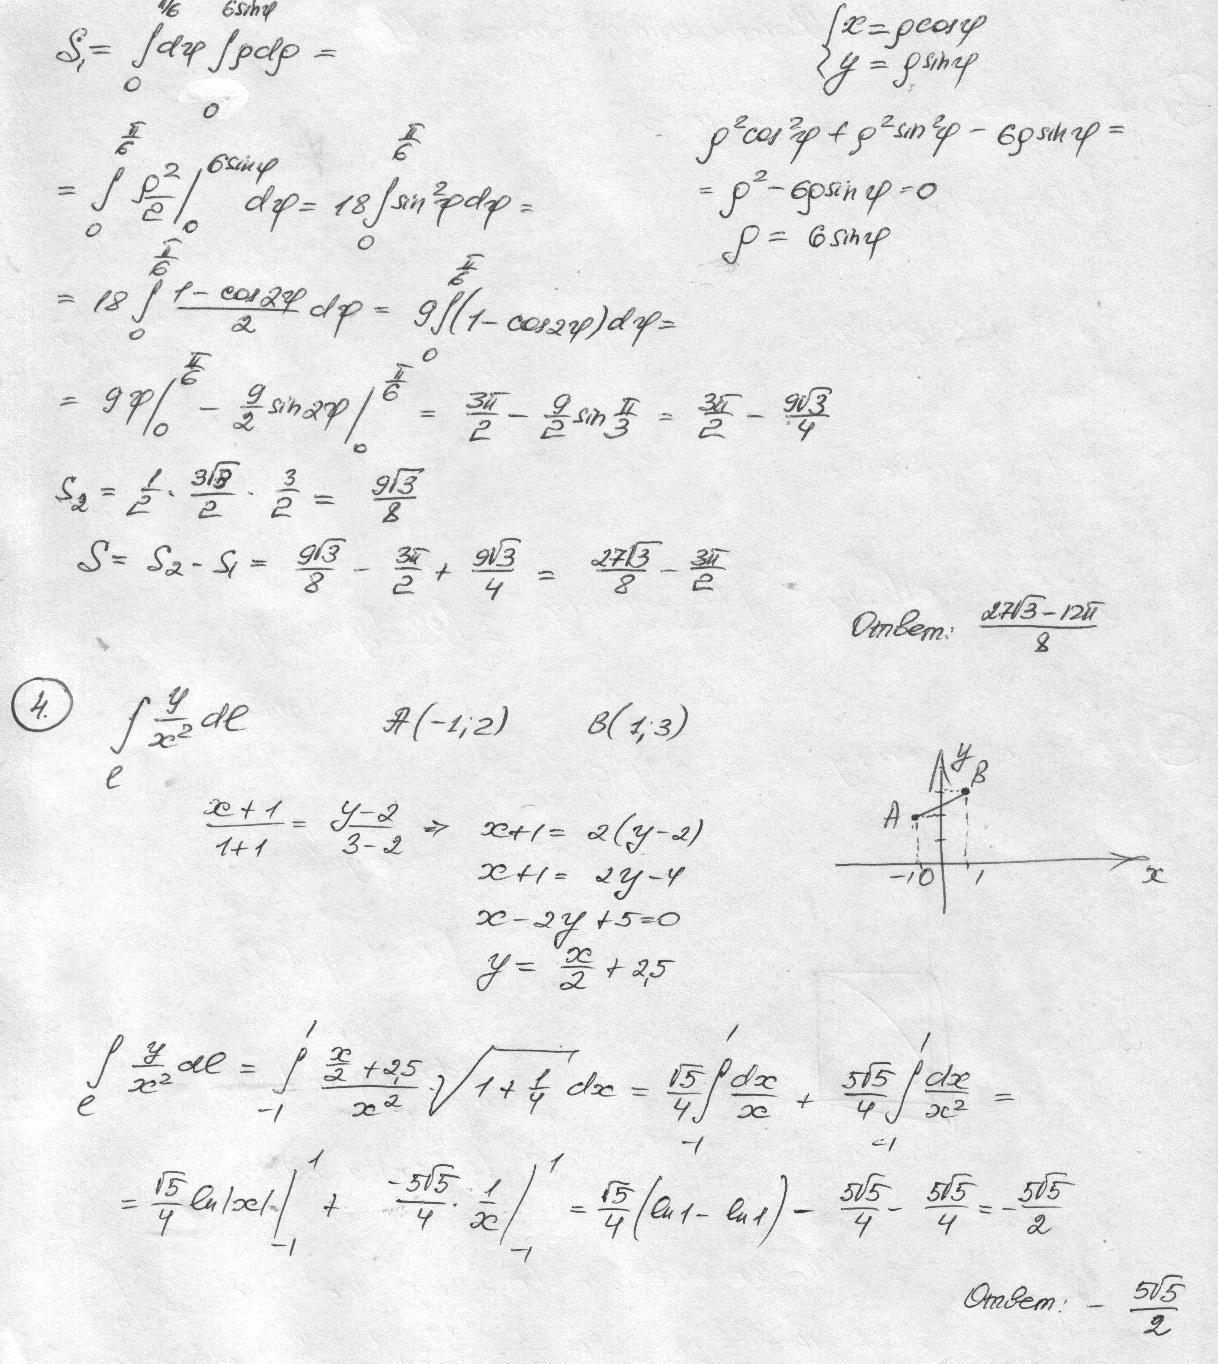 S₁ = ∫₀^{π/6} dφ ∫₀^{6sinφ} ρdρ =
{ x = ρcosφ
y = ρsinφ
ρ²cos²φ + ρ²sin²φ - 6ρsinφ =
= ∫₀^{π/6} ρ²/2 |₀^{6sinφ} dφ = 18 ∫₀^{π/6} sin²φdφ =
= ρ² - 6ρsinφ = 0
ρ = 6sinφ
= 18 ∫₀^{π/6} (1 - cos2φ)/2 dφ = 9 ∫₀^{π/6} (1 - cos2φ)dφ =
= 9φ |₀^{π/6} - 9/2 sin2φ |₀^{π/6} = 3π/2 - 9/2 sin π/3 = 3π/2 - 9√3/4
S₂ = 1/2 · 3√3/2 · 3/2 = 9√3/8
S = S₂ - S₁ = 9√3/8 - 3π/2 + 9√3/4 = 27√3/8 - 3π/2
Ответ: (27√3 - 12π)/8
4. ∫_l y/x² dl A(-1; 2) B(1; 3)
y
B
A
-1 0 1 x
(x+1)/(1+1) = (y-2)/(3-2) ⇒ x+1 = 2(y-2)
x+1 = 2y-4
x - 2y + 5 = 0
y = x/2 + 2,5
∫_l y/x² dl = ∫₋₁¹ (x/2 + 2,5)/x² · √(1 + 1/4) dx = √5/4 ∫₋₁¹ dx/x + 5√5/4 ∫₋₁¹ dx/x² =
= √5/4 ln|x| |₋₁¹ + -5√5/4 · 1/x |₋₁¹ = √5/4 (ln1 - ln1) - 5√5/4 - 5√5/4 = -5√5/2
Ответ: - 5√5/2